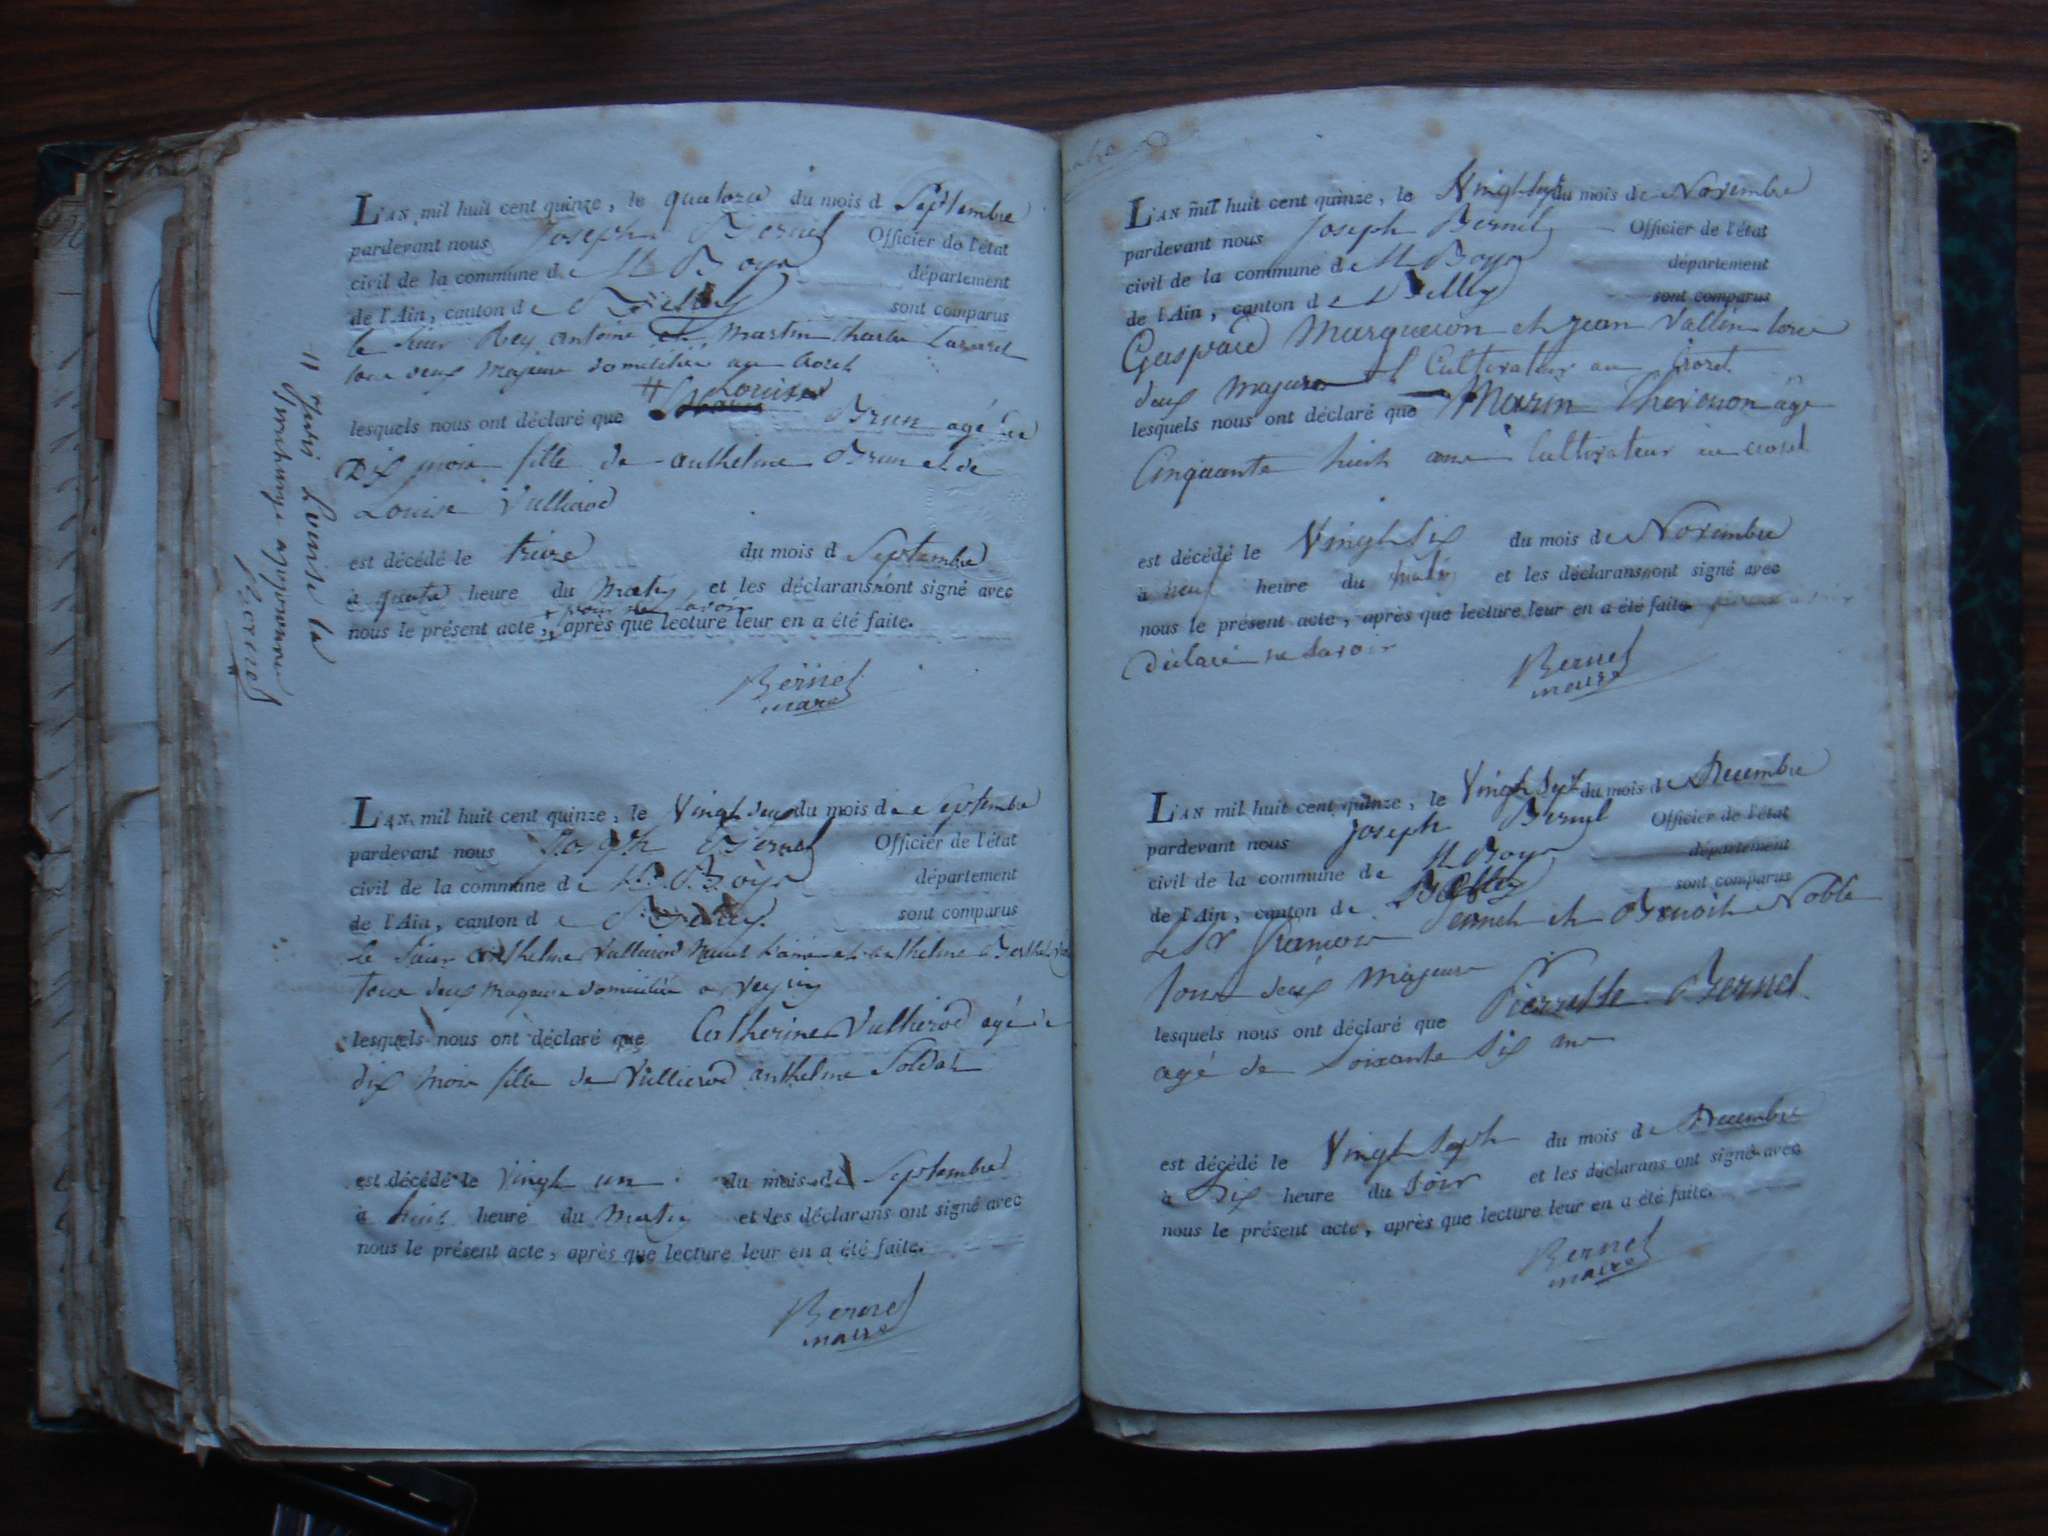 L'AN mil huit cent quinze, le quatorze du mois d Septembre
pardevant nous Joseph Bernel Officier de l'état
civil de la commune de St Boys département
de l'Ain, canton de Belley sont comparus
le Sieur Rey antoine et Martin
tous deux Majeurs domiciliés au Crozet
lesquels nous ont déclaré que Louise Brun agée de
Dix mois fille de anthelme Brun et de
Louise Vulliérod
est décédé le treize du mois d Septembre
à quatre heure du Matin et les déclarans ont signé avec
nous le présent acte, après que lecture leur en a été faite.
Bernel
maire
Louise la
approuvée
Bernel
L'AN mil huit cent quinze, le Vingt deux du mois de Septembre
pardevant nous Joseph Bernel Officier de l'état
civil de la commune de St Boys département
de l'Ain, canton de Belley sont comparus
le Sieur anthelme Vulliérod et anthelme
tous deux Majeurs domiciliés a
lesquels nous ont déclaré que Catherine Vulliérod agée de
dix mois fille de Vulliérod anthelme Soldat
est décédé le vingt un du mois de Septembre
à huit heure du Matin et les déclarans ont signé avec
nous le présent acte, après que lecture leur en a été faite.
Bernel
maire
L'AN mil huit cent quinze, le Vingt sept du mois de Novembre
pardevant nous Joseph Bernel Officier de l'état
civil de la commune de St Boys département
de l'Ain, canton de Belley sont comparus
Gaspard Marqueron et jean Vallin tous
deux Majeurs et Cultivateur au Crozet
lesquels nous ont déclaré que Marin Thevenon âgé
Cinquante huit ans Cultivateur au crozet
est décédé le Vingt Six du mois de Novembre
à neuf heure du Matin et les déclarans ont signé avec
nous le présent acte, après que lecture leur en a été faite.
déclaré ne Savoir
Bernel
maire
L'AN mil huit cent quinze, le Vingt Sept du mois de Decembre
pardevant nous Joseph Bernel Officier de l'état
civil de la commune de St Boys département
de l'Ain, canton de Belley sont comparus
Le Sr François et Benoit Noble
tous deux Majeurs
lesquels nous ont déclaré que Pierrette Bernel
agé de Soixante Six ans
est décédé le Vingt Sept du mois de Decembre
à Six heure du Soir et les déclarans ont signé avec
nous le présent acte, après que lecture leur en a été faite.
Bernel
maire